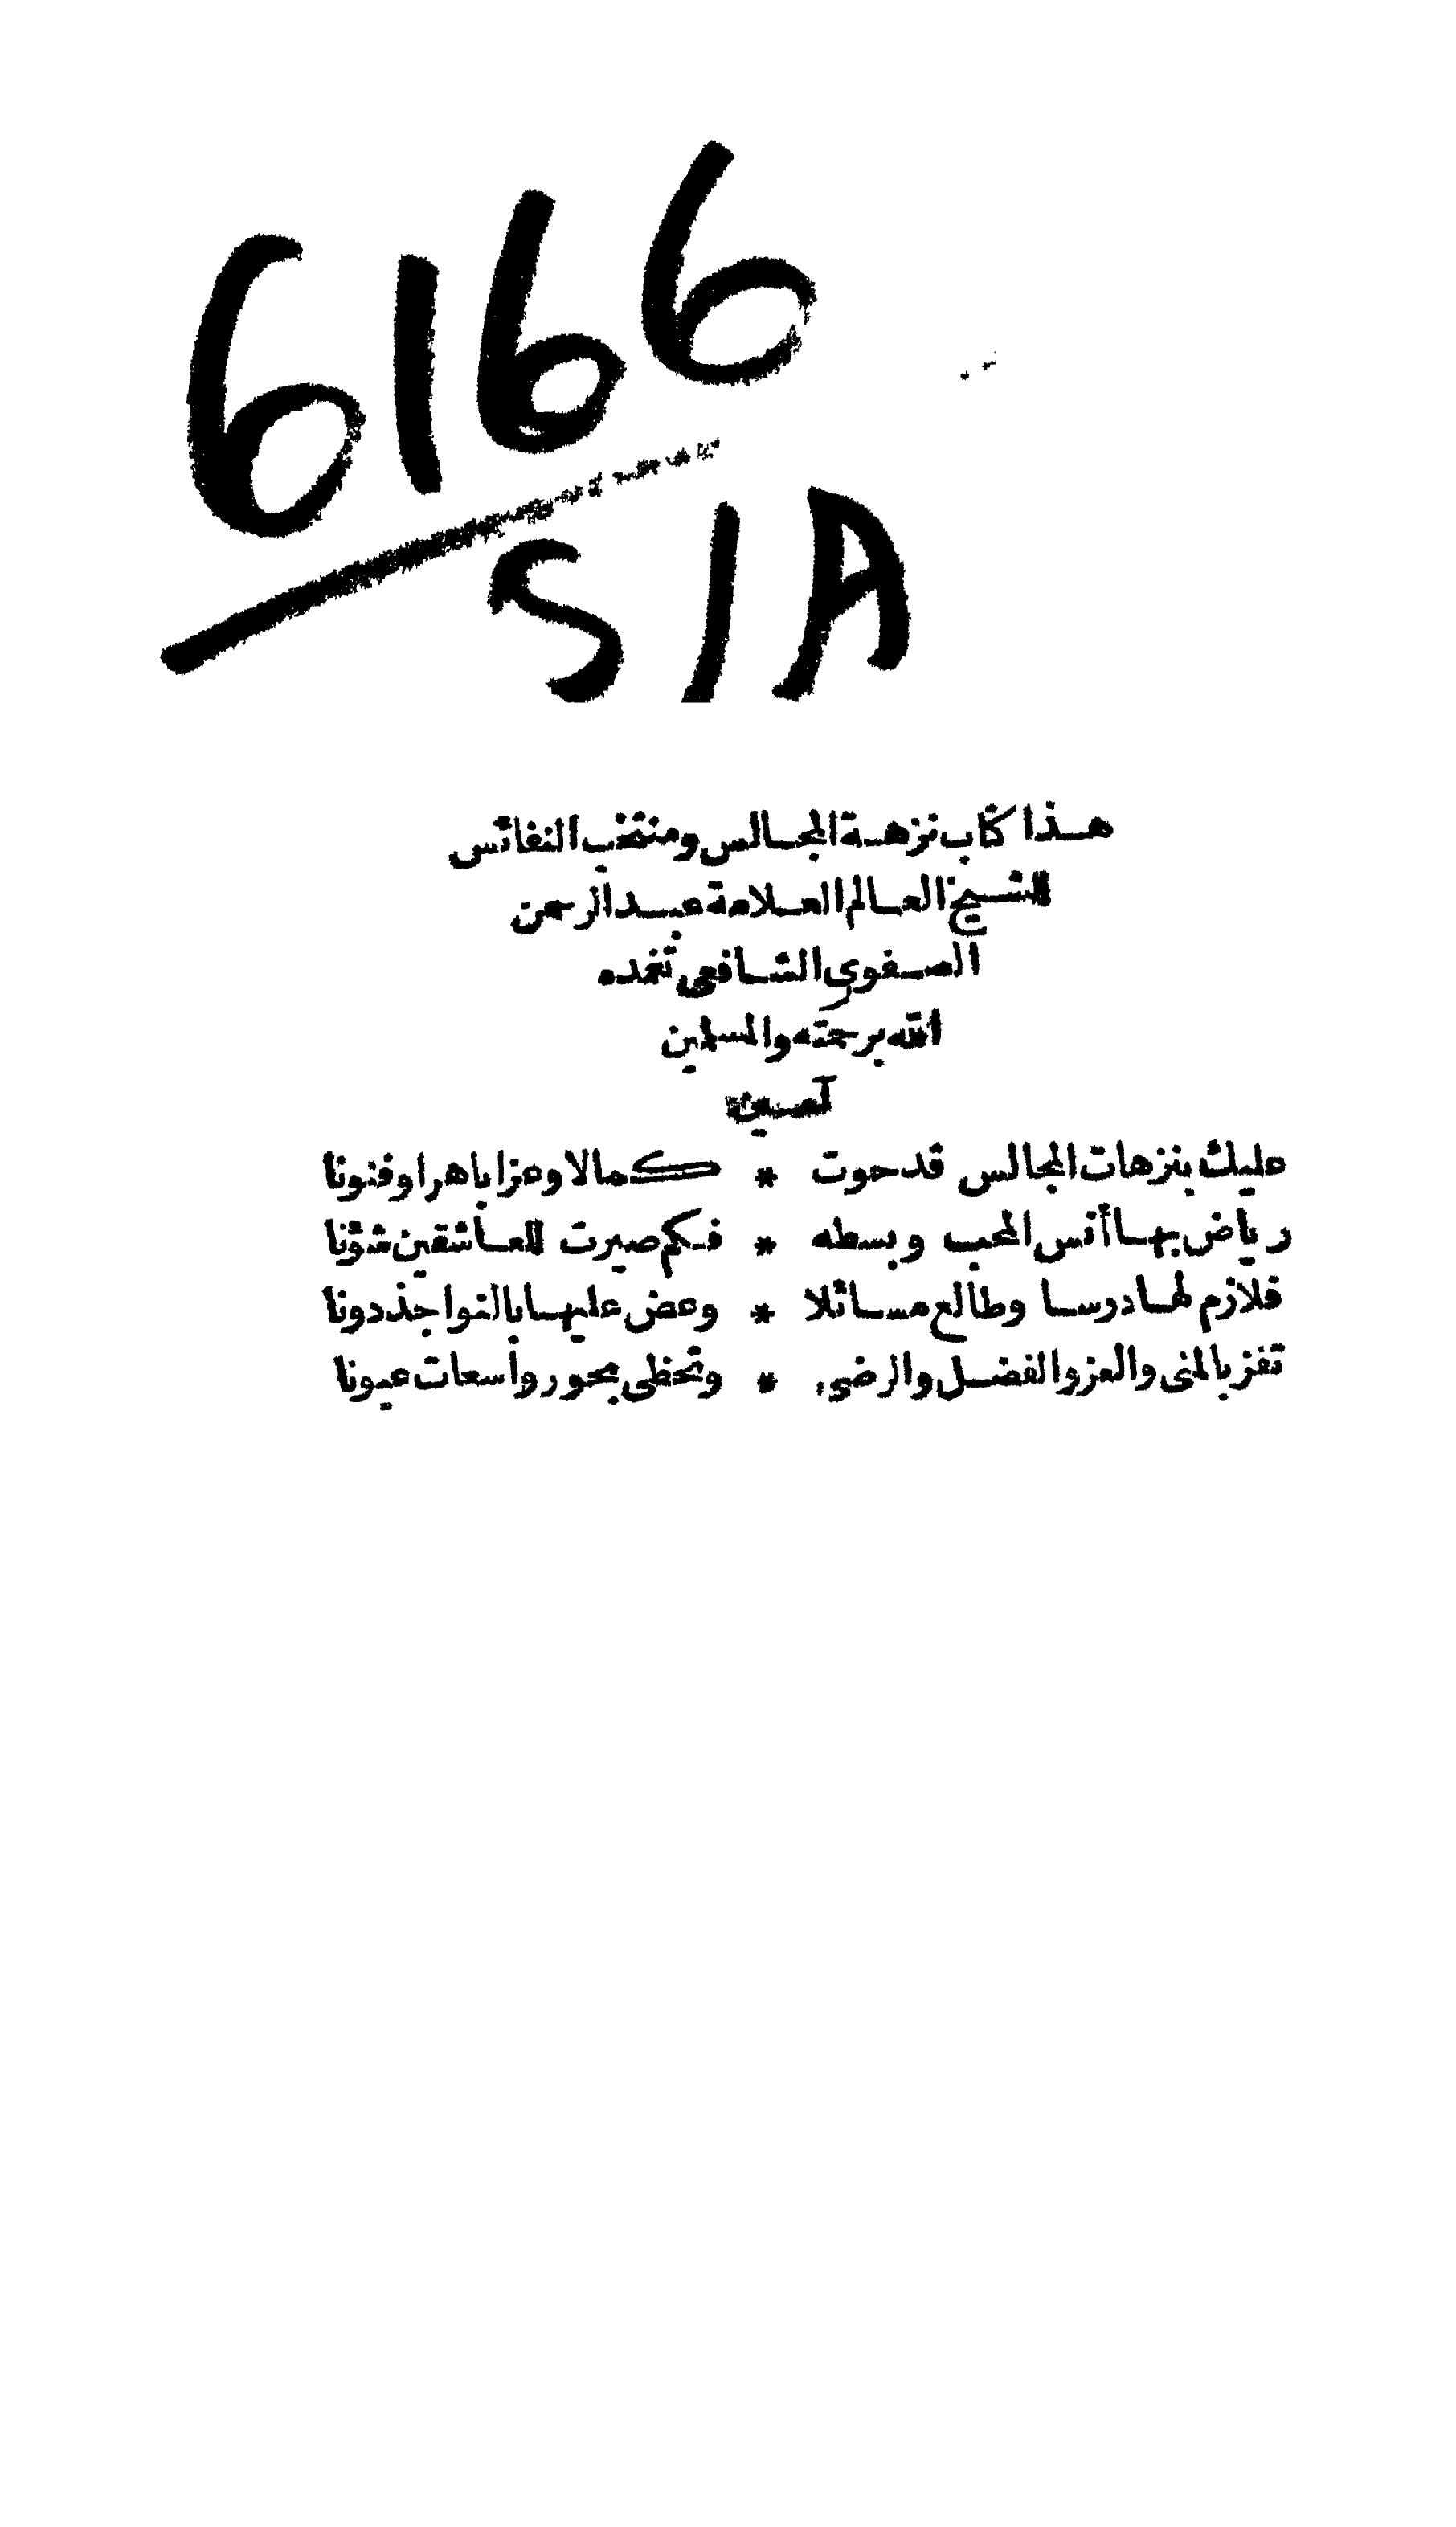 6166
SIA
هذا كتاب نزهة المجالس ومنتخب النفائس
للشيخ العالم العلامة عبد الرحمن
الصفوى الشافعى تغمده
الله برحمته والمسلمين
آمين
عليك بنزهات المجالس قد حوت * كمالا وعزا باهرا وفنونا
رياض بها أنس المحب وبسطه * فكم صيرت للعاشقين شؤنا
فلازم لها درسا وطالع مسائلا * وعض عليها بالنواجذ دونا
تفز بالمنى والعز والفضل والرضى * وتحظى بحور واسعات عيونا